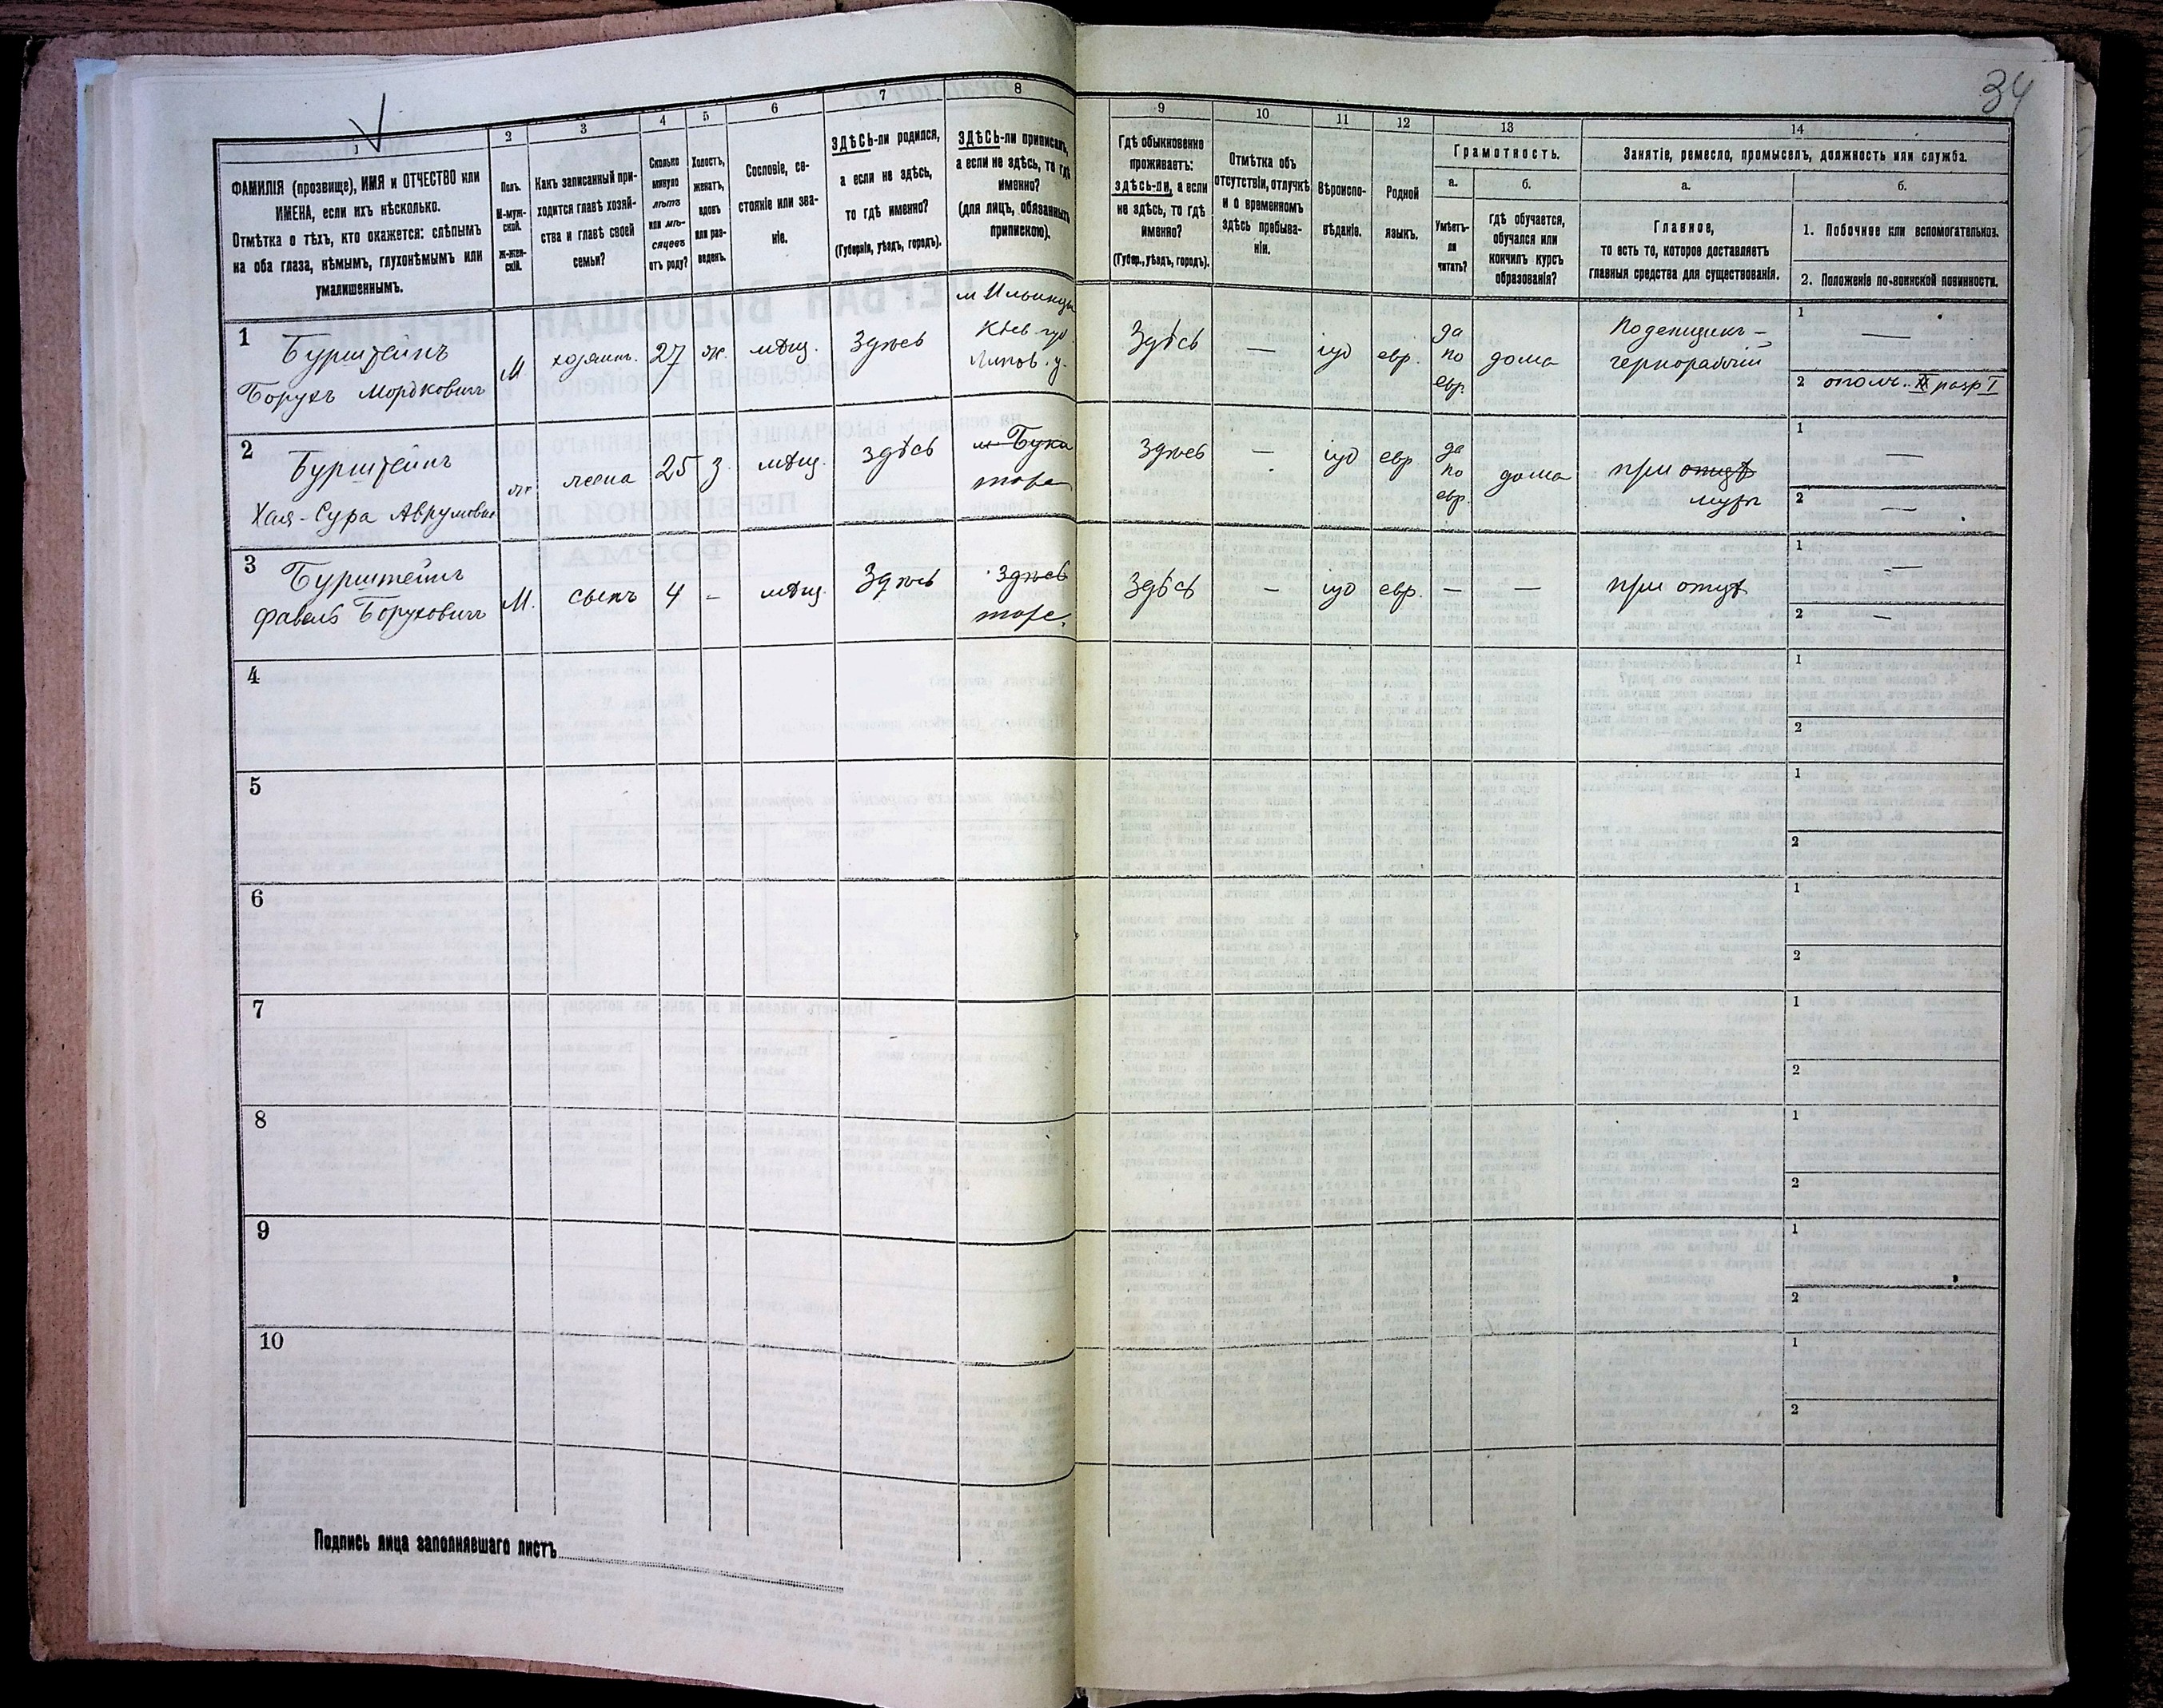 34
1
2
3
4
5
6
7
8
9
10
11
12
13
14
ФАМИЛІЯ (прозвище), ИМЯ и ОТЧЕСТВО или
ИМЕНА, если ихъ нѣсколько.
Отмѣтка о тѣхъ, кто окажется: слѣпымъ
на оба глаза, нѣмымъ, глухонѣмымъ или
умалишеннымъ.
Полъ.
М-муж-
ской.
Ж-жен-
скій.
Какъ записанный при-
ходится главѣ хозяй-
ства и главѣ своей
семьи?
Сколько
минуло
лѣтъ
или мѣ-
сяцевъ
отъ роду?
Холостъ,
женатъ,
вдовъ
или раз-
веденъ.
Сословіе, со-
стояніе или зва-
ніе.
ЗДѢСЬ-ли родился,
а если не здѣсь,
то гдѣ именно?
(Губернія, уѣздъ, городъ).
ЗДѢСЬ-ли приписанъ,
а если не здѣсь, то гдѣ
именно?
(для лицъ, обязанныхъ
припискою).
Гдѣ обыкновенно
проживаетъ:
здѣсь-ли, а если
не здѣсь, то гдѣ
именно?
(Губер., уѣздъ, городъ).
Отмѣтка объ
отсутствіи, отлучкѣ
и о временномъ
здѣсь пребыва-
ніи.
Вѣроиспо-
вѣданіе.
Родной
языкъ.
Грамотность.
а.
б.
Умѣетъ-
ли
читать?
гдѣ обучается,
обучался или
кончилъ курсъ
образованія?
Занятіе, ремесло, промыселъ, должность или служба.
а.
б.
Главное,
то есть то, которое доставляетъ
главныя средства для существованія.
1. Побочное или вспомогательное.
2. Положеніе по воинской повинности.
1
Бурштейнъ
Борухъ Мордковичъ
М
хозяинъ.
27
ж.
мѣщ.
Здѣсь
м Ильинцы
Кіев. губ.
Липов. у.
Здѣсь
—
іуд
евр.
да
по
евр.
дома
Поденщикъ-
чернорабочій
1 —
2 ополч. разр I
2
Бурштейнъ
Хая-Сура Аврумовна
ж
жена
25
з.
мѣщ.
здѣсь
м Бука
тоже
Здѣсь
—
іуд
евр
да
по
евр.
дома
при отцѣ
мужѣ
1 —
2 —
3
Бурштейнъ
Файвель Боруховичъ
М.
сынъ
4
-
мѣщ.
Здѣсь
Здѣсь
тоже.
Здѣсь
-
іуд
евр.
—
—
при отцѣ
1 —
2 —
4
1
2
5
1
2
6
1
2
7
1
2
8
1
2
9
1
2
10
1
2
Подпись лица заполнявшаго листъ